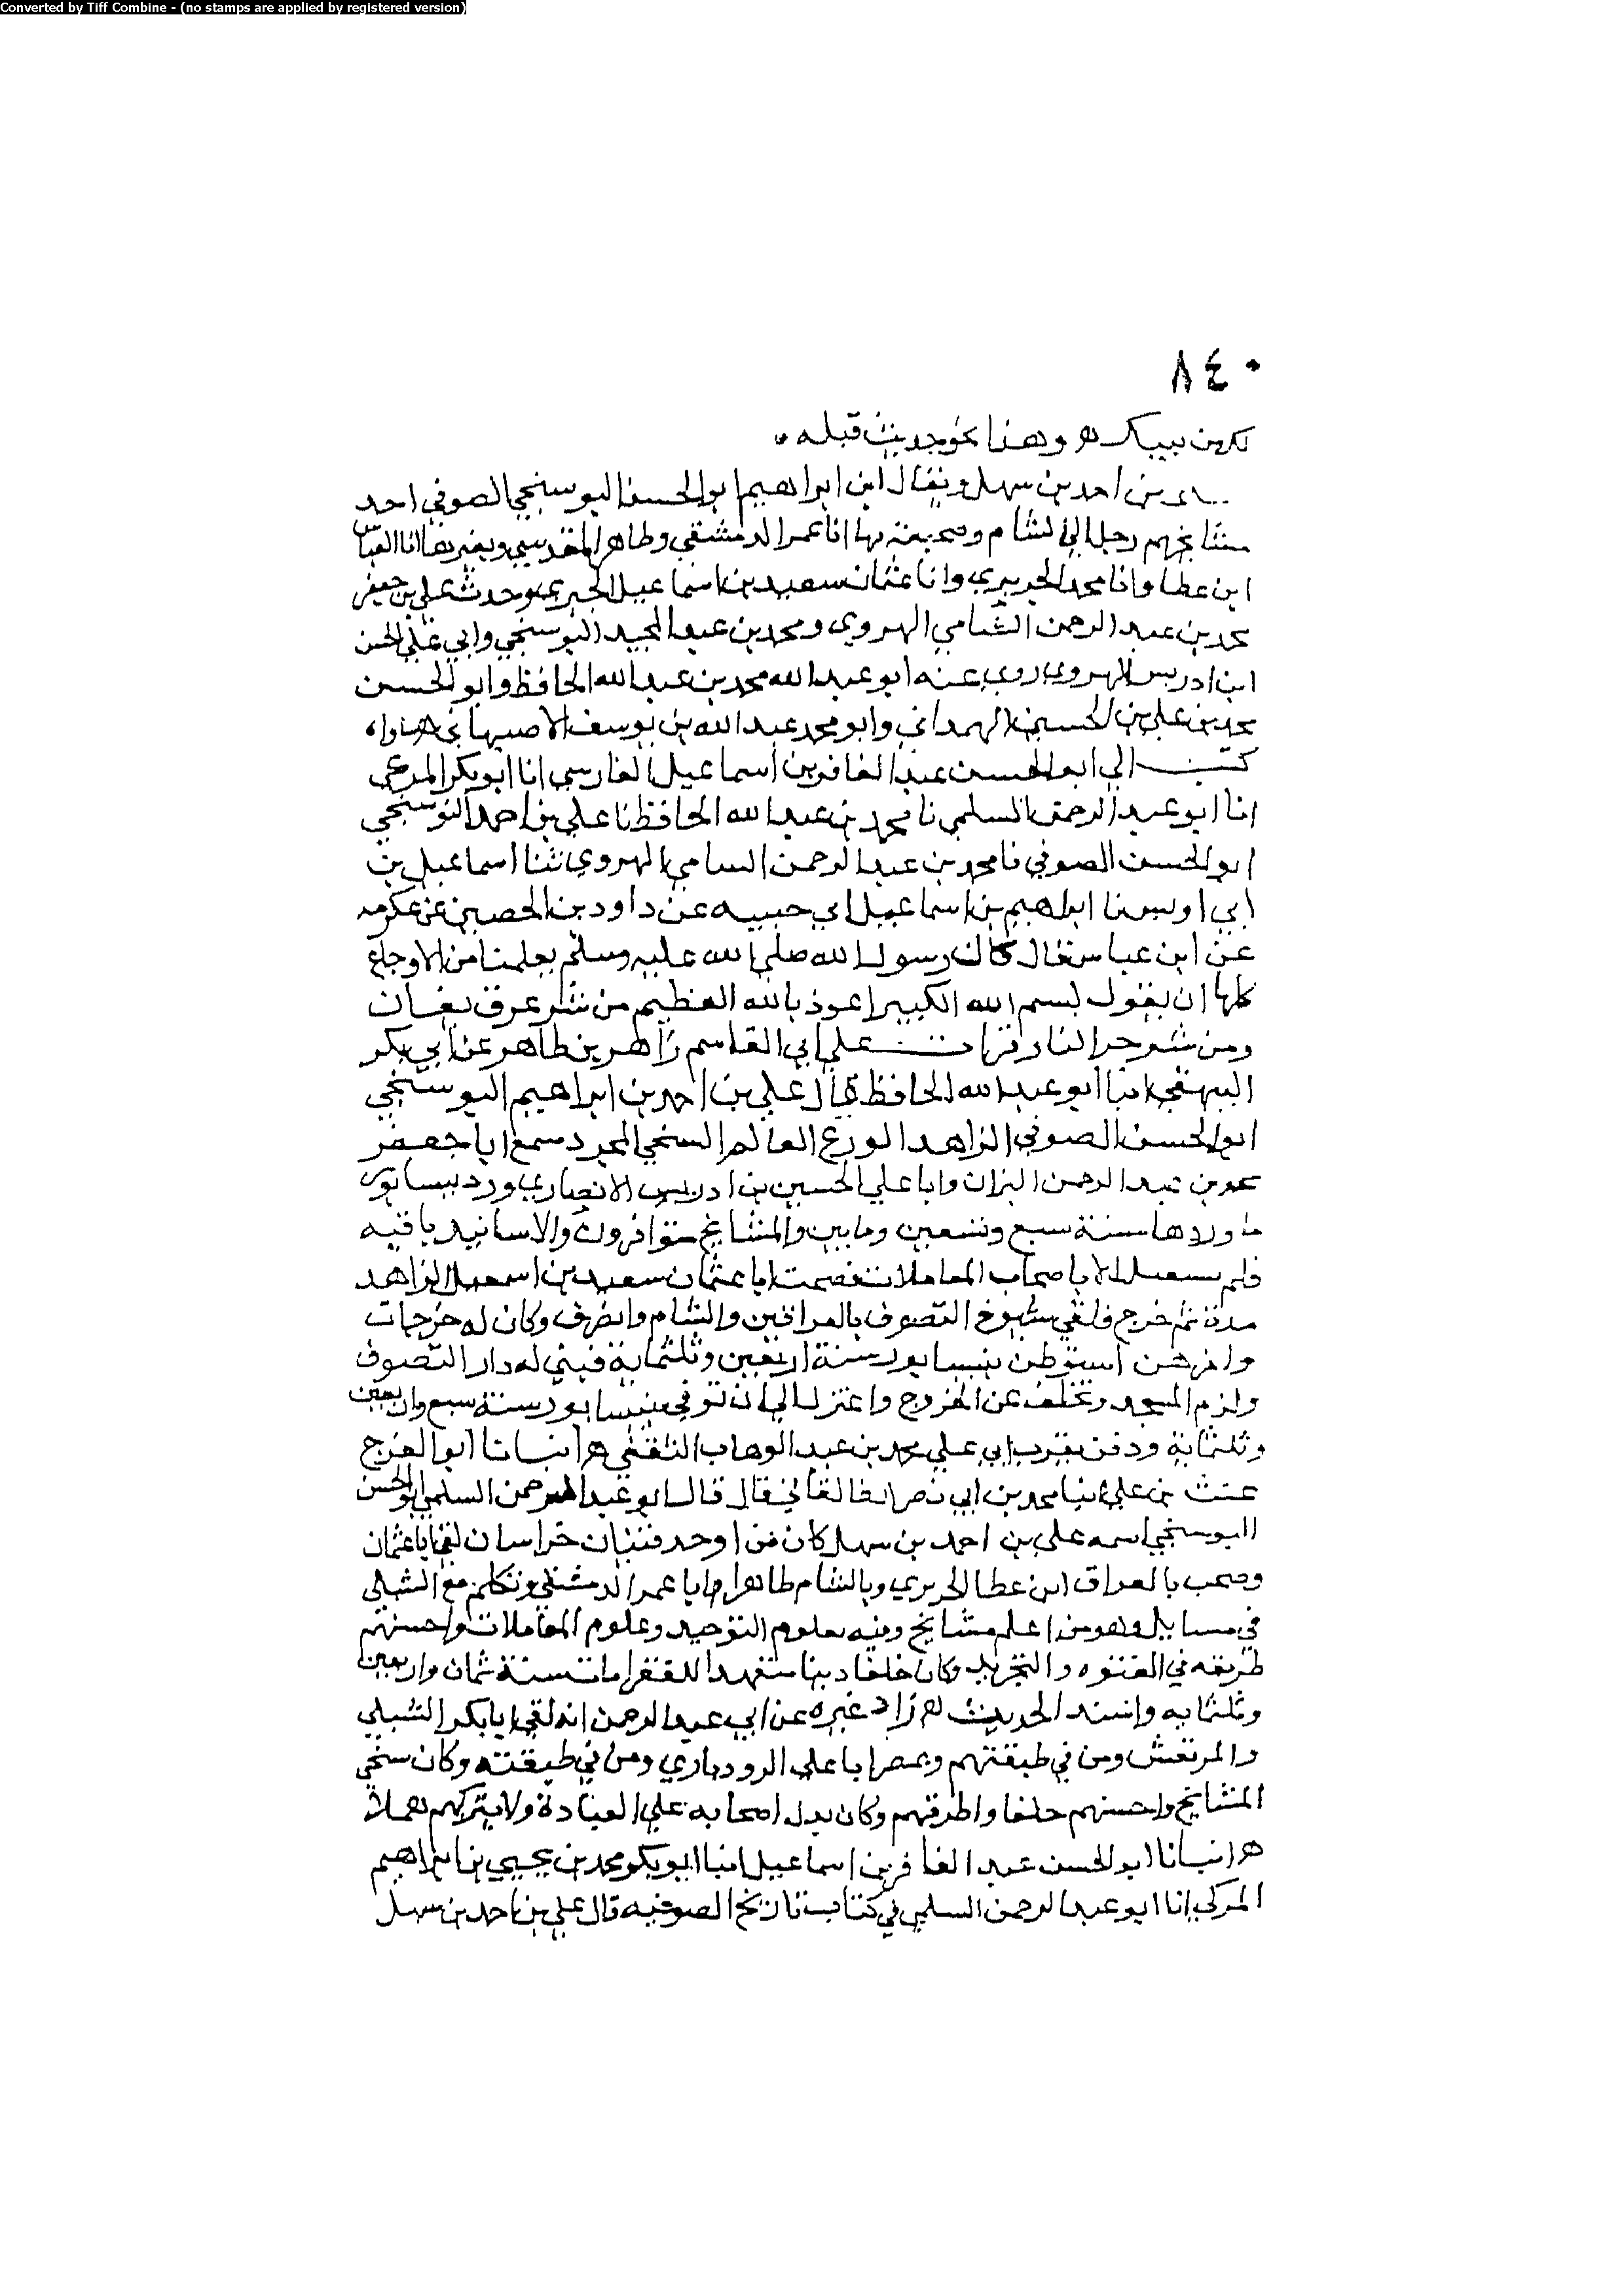 Converted by Tiff Combine - (no stamps are applied by registered version)
٨٤٠
وهذا نحو حديث قبله
بن احمد بن سهل ويقال ابن ابراهيم ابو الحسن البوسنجي الصوفي احد
مشايخهم رحل الى الشام وصحب بها ابا عمر الدمشقي وطاهر المقدسي وبغيرها ابا العباس
ابن عطا وابا محمد الجريري وابا عثمان سعيد بن اسماعيل الحيري وحدث علي بن جعفر
محمد بن عبد الرحمن الشامي الهروي ومحمد بن عبد المجيد البوسنجي وابي علي الحسن
ابن ادريس الهروي روى عنه ابو عبد الله محمد بن عبد الله الحافظ وابو الحسن
محمد بن علي بن الحسين الهمداني وابو محمد عبد الله بن يوسف الاصبهاني
كتب الي ابو الحسن عبد الغافر بن اسماعيل الفارسي انا ابو بكر المزكي
انا ابو عبد الرحمن السلمي نا محمد بن عبد الله الحافظ نا علي بن احمد البوسنجي
ابو الحسن الصوفي نا محمد بن عبد الرحمن السامي الهروي ثنا اسماعيل بن
ابي اويس نا ابراهيم بن اسماعيل ابي حبيبه عن داود بن الحصين عن عكرمه
عن ابن عباس قال كان رسول الله صلى الله عليه وسلم يعلمنا من الاوجاع
كلها ان يقول بسم الله الكبير اعوذ بالله العظيم من شر عرق نعان
ومن شر حر النار قرات على ابي القاسم زاهر بن طاهر عن ابي بكر
البيهقي انبا ابو عبد الله الحافظ قال علي بن احمد بن ابراهيم البوسنجي
ابو الحسن الصوفي الزاهد الورع العالم السخي المجرد سمع ابا جعفر
محمد بن عبد الرحمن البزان وابا علي الحسين بن ادريس الانصاري ورد نيسابور
وردها سنة سبع وتسعين ومايتين والمشايخ متوافرون والاسانيد باقيه
فلم يشتغل الا باصحاب المعاملات فصحب ابا عثمان سعيد بن اسمعيل الزاهد
مدة ثم خرج فلقي شيوخ التصوف بالعراقين والشام وانصرف وكان له خرجات
واخرهن استوطن نيسابور سنة اربعين وثلثماية فبني له دار التصوف
ولزم المسجد وتخلف عن الخروج واعتزل الى ان توفي بنيسابور سنة سبع واربعين
وثلثماية ودفن بقرب ابي علي محمد بن عبد الوهاب الثقفي ه انبانا ابو الفرج
غيث بن علي انبا محمد بن ابي نصر الطالقاني قال قال ابو عبد الرحمن السلمي ابو الحسن
البوسنجي اسمه علي بن احمد بن سهل كان من اوحد فتيان خراسان لقي ابا عثمان
وصحب بالعراق ابن عطا الجريري وبالشام طاهرا وابا عمر الدمشقي وتكلم مع الشبلي
في مسايل وهو من اعلم مشايخ وقته بعلوم التوحيد وعلوم المعاملات واحسنهم
طريقه في الفتوه والتجريد وكان خلقا دينا متعهدا للفقرا مات سنة ثمان واربعين
وثلثمايه واسند الحديث ه زاد غيره عن ابي عبد الرحمن انه لقي ابا بكر الشبلي
والمرتعش ومن في طبقتهم وبمصر ابا علي الروذباري ومن في طبقته وكان سخي
المشايخ واحسنهم خلقا واظرفهم وكان يدل اصحابه على العبادة ولا يتركهم هملا
ه انبانا ابو الحسن عبد الغافر بن اسماعيل انبا ابو بكر محمد بن يحيى بن ابراهيم
المزكي انا ابو عبد الرحمن السلمي في كتاب تاريخ الصوفيه قال علي بن احمد بن سهل